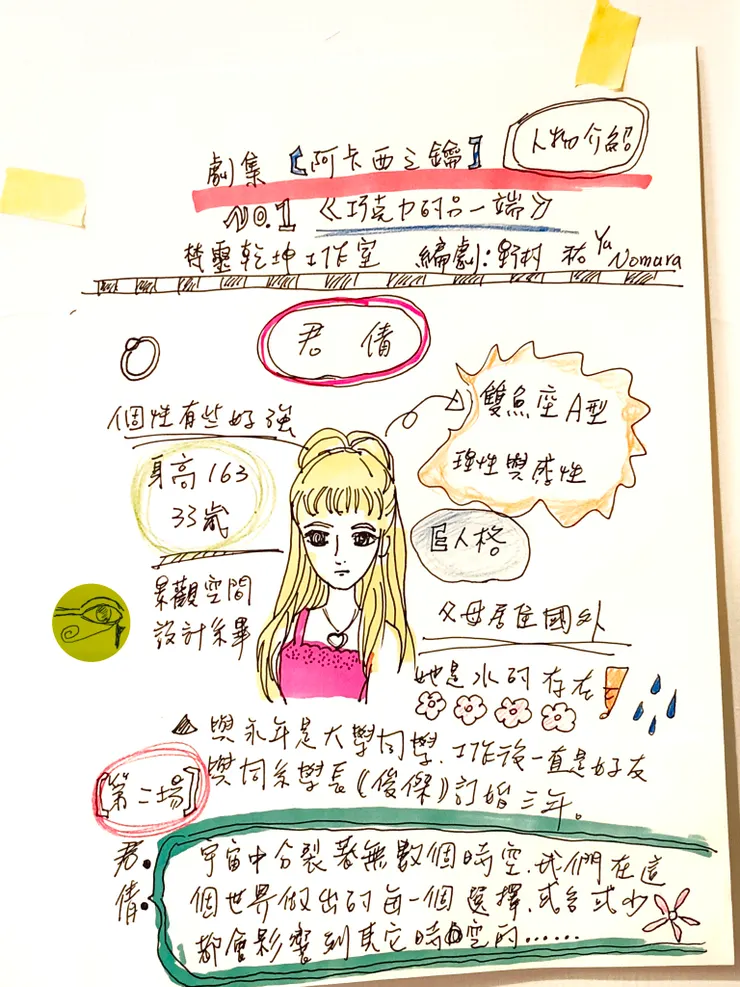 人物介紹
劇集【阿卡西之鑰】
NO.1 《巧克力的另一端》
特靈乾坤工作室 編劇:野村 祐 Yu Nomura
君倩
個性有些好強
雙魚座A型
理性與感性
身高163
33歲
E人格
景觀空間
設計系畢
父母居住國外
她是水的存在
與永年是大學同學.工作後一直是好友
與同系學長《俊傑》訂婚三年。
【第二場】
君倩:
宇宙中分裂著無數個時空.我們在這
個世界做出的每一個選擇.或多或少
都會影響到其它時空的……